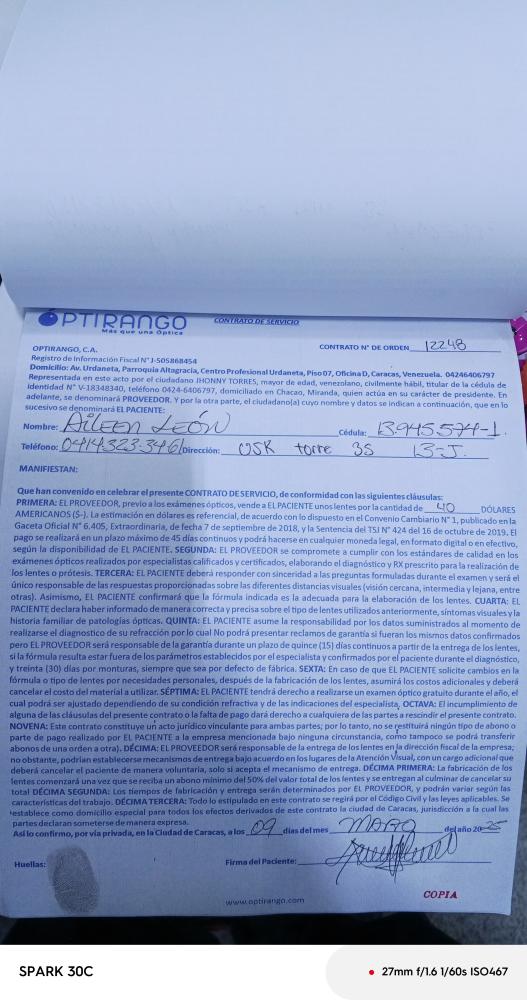 OPTIRANGO
Más que una Óptica
CONTRATO DE SERVICIO
CONTRATO N° DE ORDEN 12248
OPTIRANGO, C.A.
Registro de Información Fiscal N° J-505868454
Domicilio: Av. Urdaneta, Parroquia Altagracia, Centro Profesional Urdaneta, Piso 07, Oficina D, Caracas, Venezuela. 04246406797
Representada en este acto por el ciudadano JHONNY TORRES, mayor de edad, venezolano, civilmente hábil, titular de la cédula de
identidad N° V-18348340, teléfono 0424-6406797, domiciliado en Chacao, Miranda, quien actúa en su carácter de presidente. En
adelante, se denominará PROVEEDOR. Y por la otra parte, el ciudadano(a) cuyo nombre y datos se indican a continuación, que en lo
sucesivo se denominará EL PACIENTE:
Nombre: Aileen León Cédula: 13.945.574-1.
Teléfono: 04143233461 Dirección: USR torre 3S 13-J.
MANIFIESTAN:
Que han convenido en celebrar el presente CONTRATO DE SERVICIO, de conformidad con las siguientes cláusulas:
PRIMERA: EL PROVEEDOR, previo a los exámenes ópticos, vende a EL PACIENTE unos lentes por la cantidad de 40 DÓLARES
AMERICANOS ($-). La estimación en dólares es referencial, de acuerdo con lo dispuesto en el Convenio Cambiario N° 1, publicado en la
Gaceta Oficial N° 6.405, Extraordinaria, de fecha 7 de septiembre de 2018, y la Sentencia del TSJ N° 424 del 16 de octubre de 2019. El
pago se realizará en un plazo máximo de 45 días continuos y podrá hacerse en cualquier moneda legal, en formato digital o en efectivo,
según la disponibilidad de EL PACIENTE. SEGUNDA: EL PROVEEDOR se compromete a cumplir con los estándares de calidad en los
exámenes ópticos realizados por especialistas calificados y certificados, elaborando el diagnóstico y RX prescrito para la realización de
los lentes o prótesis. TERCERA: EL PACIENTE deberá responder con sinceridad a las preguntas formuladas durante el examen y será el
único responsable de las respuestas proporcionadas sobre las diferentes distancias visuales (visión cercana, intermedia y lejana, entre
otras). Asimismo, EL PACIENTE confirmará que la fórmula indicada es la adecuada para la elaboración de los lentes. CUARTA: EL
PACIENTE declara haber informado de manera correcta y precisa sobre el tipo de lentes utilizados anteriormente, síntomas visuales y la
historia familiar de patologías ópticas. QUINTA: EL PACIENTE asume la responsabilidad por los datos suministrados al momento de
realizarse el diagnostico de su refracción por lo cual No podrá presentar reclamos de garantía si fueran los mismos datos confirmados
pero EL PROVEEDOR será responsable de la garantía durante un plazo de quince (15) días continuos a partir de la entrega de los lentes,
si la fórmula resulta estar fuera de los parámetros establecidos por el especialista y confirmados por el paciente durante el diagnóstico,
y treinta (30) días por monturas, siempre que sea por defecto de fábrica. SEXTA: En caso de que EL PACIENTE solicite cambios en la
fórmula o tipo de lentes por necesidades personales, después de la fabricación de los lentes, asumirá los costos adicionales y deberá
cancelar el costo del material a utilizar. SÉPTIMA: EL PACIENTE tendrá derecho a realizarse un examen óptico gratuito durante el año, el
cual podrá ser ajustado dependiendo de su condición refractiva y de las indicaciones del especialista, OCTAVA: El incumplimiento de
alguna de las cláusulas del presente contrato o la falta de pago dará derecho a cualquiera de las partes a rescindir el presente contrato.
NOVENA: Este contrato constituye un acto jurídico vinculante para ambas partes; por lo tanto, no se restituirá ningún tipo de abono o
parte de pago realizado por EL PACIENTE a la empresa mencionada bajo ninguna circunstancia, como tampoco se podrá transferir
abonos de una orden a otra). DÉCIMA: EL PROVEEDOR será responsable de la entrega de los lentes en la dirección fiscal de la empresa;
no obstante, podrían establecerse mecanismos de entrega bajo acuerdo en los lugares de la Atención Visual, con un cargo adicional que
deberá cancelar el paciente de manera voluntaria, solo si acepta el mecanismo de entrega. DÉCIMA PRIMERA: La fabricación de los
lentes comenzará una vez se reciba un abono mínimo del 50% del valor total de los lentes y se entregan al culminar de cancelar su
total DÉCIMA SEGUNDA: Los tiempos de fabricación y entrega serán determinados por EL PROVEEDOR, y podrán variar según las
características del trabajo. DÉCIMA TERCERA: Todo lo estipulado en este contrato se regirá por el Código Civil y las leyes aplicables. Se
establece como domicilio especial para todos los efectos derivados de este contrato la ciudad de Caracas, jurisdicción a la cual las
partes declaran someterse de manera expresa.
Así lo confirmo, por vía privada, en la Ciudad de Caracas, a los 09 días del mes MAYO del año 2025
Huellas:
Firma del Paciente:
www.optirango.com
COPIA
SPARK 30C
27mm f/1.6 1/60s ISO467